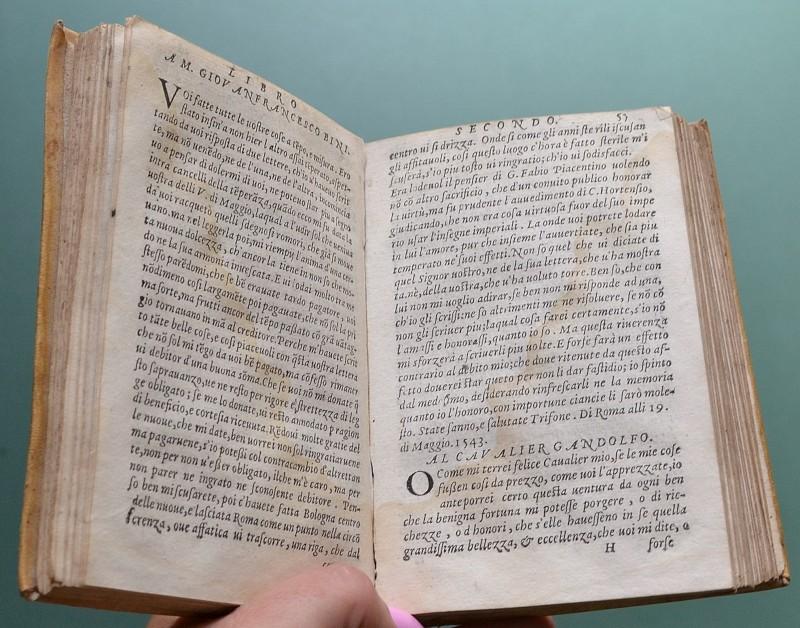 LIBRO
A M. GIOVANFRANCESCO BINI.
VOi fatte tutte le uostre cose a tẽpo, e misura. Ero
stato insin'a non hier l'altro assai
tando da uoi risposta di due lettere, ch'io u'haueuo scrit
te, ma nõ uenẽdo, ne de l'una, ne de l'altra, incominciã
uo a pensar di dolermi di uoi, ne poteuo star piu a segno
intra cancelli della tẽperãza, quãdo ecco mi fu data la
uostra delli V. di Maggio, laqual a l'udir sol che uenia
da uoi racquetò quelli sdegnosi romori, che già si moue
uano, ma nel leggerla poi, mi riempy l'anima d'una cer-
ta nuoua dolcezza, ch'ancor la tiene in non so che mo-
do ne la sua armonia inuescata. E ui lodai molto tra me
stesso parẽdomi, che se bẽ erauate tardo pagatore, uoi
nõdimeno cosi largamẽte poi pagauate, che nõ sol la pri
ma sorte, ma frutti ancor del tẽpo passato cõ grã uãtag-
gio tornauano in mã al creditore. Perche m'hauete scrit
to tãte belle cose, e cosi piaceuoli con q̃sta uostra lettera
che nõ sol mi tẽgo da uoi bẽ pagato, ma cõfesso rimaner
ui debitor d'una buona sõma. Che se uoi nõ mi donate q̃
sto soprauanzo, ue ne resto per rigore e strettezza di leg
ge obligato; se me lo donate, ui resto annodato p ragion
di beneficio, e cortesia riceuuta. Rẽdoui molte gratie del
le nuoue, che mi date, ben uorrei non sol ringratiaruene
ma pagaruene, s'io potessi col contracambio d'altretton
te, non per non u'esser obligato, ilche m'è caro, ma per
non parer ne ingrato ne sconoscente debitore. Pen-
so ben mi scusarete, poi c'hauete fatta Bologna centro
delle nuoue, e lasciata Roma come un punto nella circõ
ferenza, oue affatica ui trascorre, una riga, che dal
SECONDO. 57
centro ui si drizza. Onde si come gli anni sterili iscusan
gli affittauoli, cosi questo luogo c'hora è fatto sterile m'i
scuserà, s'io piu tosto ui ringratio; ch'io ui sodisfacci.
Era lodeuol il pensier di G. Fabio Piacentino uolendo
nõ cõ altro sacrificio, che d'un conuito publico honorar
la uirtù, ma fu prudente l'auuedimento di C. Hortensio,
giudicando, che non era cosa uirtuosa fuor del suo impe
rio usar l'insegne imperiali. La onde uoi potrete lodare
in lui l'amore, pur che insieme l'auuertiate, che sia piu
temperato ne suoi effetti. Non so quel che ui diciate di
quel Signor uostro, ne de la sua lettera, che u'ha mostra
ta, nè, della uostra, che u'ha uoluto torre. Ben sò, che con
lui non mi uoglio adirar, se ben non mi risponde ad una,
ch'io gli scrissi, ne so altrimenti me ne risoluere, se nõ cõ
non gli scriuer piu; laqual cosa farei certamente, s'io nõ
l'amassi e honorassi, quanto io so. Ma questa riuerenza
mi sforzerà a scriuerli piu uolte. E forse farà un effetto
contrario al debito mio; che doue ritenuta da questo af-
fetto douerei star queto per non li dar fastidio; io spinto
dal medesmo, desiderando rinfrescarli ne la memoria
quanto io l'honoro, con importune ciancie li sarò mole-
sto. State sanno, e salutate Trifone. Di Roma alli 19.
di Maggio. 1543.
AL CAVALIER GANDOLFO.
O Come mi terrei felice Caualier mio, se le mie cose
fussen cosi da prezzo, come uoi l'apprezzate, io
anteporrei certo questa uentura da ogni ben
che la benigna fortuna mi potesse porgere, o di ric-
chezze, o d'honori, che s'elle hauesseno in se quella
grandissima bellezza, & eccellenza, che uoi mi dite, o
H forse